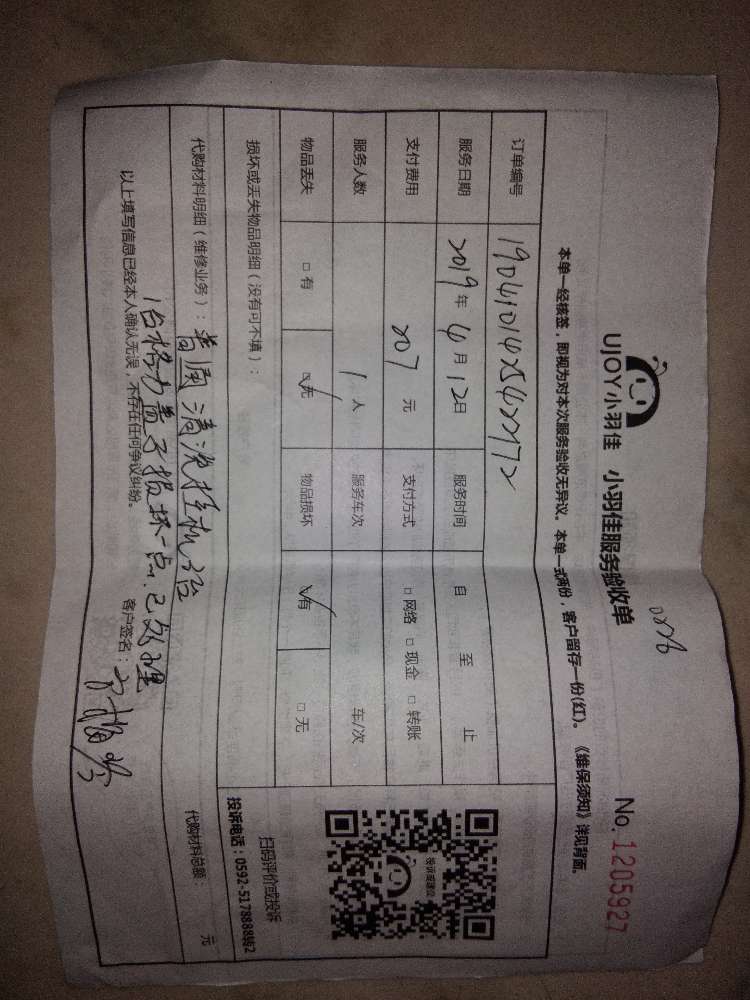 UJOY小羽佳 小羽佳服务验收单
No. 1205927
本单一经核签，即视为对本次服务验收无异议。本单一式两份，客户留存一份(红)。《维保须知》详见背面。
订单编号
服务日期 2019年 4月 12日 服务时间 自 至 止
支付费用 207 元 支付方式 □ 网络 □ 现金 □ 转账
服务人数 1 人 服务车次 车/次
物品丢失 □ 有 ☑ 无 物品损坏 ☑ 有 □ 无
损坏或丢失物品明细（没有可不填）：
代购材料明细（维修业务）： 清洗挂机 代购材料总额： 元
1台格力盖子损坏一点，已处理
以上填写信息已经本人确认无误，不存在任何争议纠纷。 客户签名：
投诉或建议
扫码评价或投诉
投诉电话：0592-5178888转2